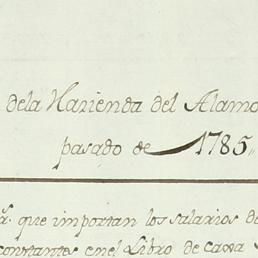 dela Hazienda del Alamo
pasado de 1785,,
que importan los salarios de
constantes en el Libro de caxa